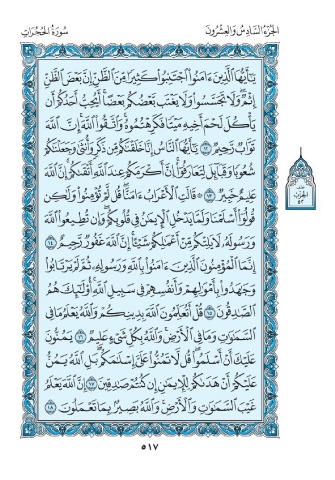 الجزء السادس والعشرون
سورة الحجرات
يَٰٓأَيُّهَا ٱلَّذِينَ ءَامَنُوا۟ ٱجْتَنِبُوا۟ كَثِيرًا مِّنَ ٱلظَّنِّ إِنَّ بَعْضَ ٱلظَّنِّ
إِثْمٌ وَلَا تَجَسَّسُوا۟ وَلَا يَغْتَب بَّعْضُكُم بَعْضًا أَيُحِبُّ أَحَدُكُمْ أَن
يَأْكُلَ لَحْمَ أَخِيهِ مَيْتًا فَكَرِهْتُمُوهُ وَٱتَّقُوا۟ ٱللَّهَ إِنَّ ٱللَّهَ
تَوَّابٌ رَّحِيمٌ ١٢ يَٰٓأَيُّهَا ٱلنَّاسُ إِنَّا خَلَقْنَٰكُم مِّن ذَكَرٍ وَأُنثَىٰ وَجَعَلْنَٰكُمْ
شُعُوبًا وَقَبَآئِلَ لِتَعَارَفُوٓا۟ إِنَّ أَكْرَمَكُمْ عِندَ ٱللَّهِ أَتْقَىٰكُمْ إِنَّ ٱللَّهَ
عَلِيمٌ خَبِيرٌ ١٣ قَالَتِ ٱلْأَعْرَابُ ءَامَنَّا قُل لَّمْ تُؤْمِنُوا۟ وَلَٰكِن
قُولُوٓا۟ أَسْلَمْنَا وَلَمَّا يَدْخُلِ ٱلْإِيمَٰنُ فِى قُلُوبِكُمْ وَإِن تُطِيعُوا۟ ٱللَّهَ
وَرَسُولَهُۥ لَا يَلِتْكُم مِّنْ أَعْمَٰلِكُمْ شَيْـًٔا إِنَّ ٱللَّهَ غَفُورٌ رَّحِيمٌ ١٤
إِنَّمَا ٱلْمُؤْمِنُونَ ٱلَّذِينَ ءَامَنُوا۟ بِٱللَّهِ وَرَسُولِهِۦ ثُمَّ لَمْ يَرْتَابُوا۟
وَجَٰهَدُوا۟ بِأَمْوَٰلِهِمْ وَأَنفُسِهِمْ فِى سَبِيلِ ٱللَّهِ أُو۟لَٰٓئِكَ هُمُ
ٱلصَّٰدِقُونَ ١٥ قُلْ أَتُعَلِّمُونَ ٱللَّهَ بِدِينِكُمْ وَٱللَّهُ يَعْلَمُ مَا فِى
ٱلسَّمَٰوَٰتِ وَمَا فِى ٱلْأَرْضِ وَٱللَّهُ بِكُلِّ شَىْءٍ عَلِيمٌ ١٦ يَمُنُّونَ
عَلَيْكَ أَنْ أَسْلَمُوا۟ قُل لَّا تَمُنُّوا۟ عَلَىَّ إِسْلَٰمَكُم بَلِ ٱللَّهُ يَمُنُّ
عَلَيْكُمْ أَنْ هَدَىٰكُمْ لِلْإِيمَٰنِ إِن كُنتُمْ صَٰدِقِينَ ١٧ إِنَّ ٱللَّهَ يَعْلَمُ
غَيْبَ ٱلسَّمَٰوَٰتِ وَٱلْأَرْضِ وَٱللَّهُ بَصِيرٌۢ بِمَا تَعْمَلُونَ ١٨
٥١٧